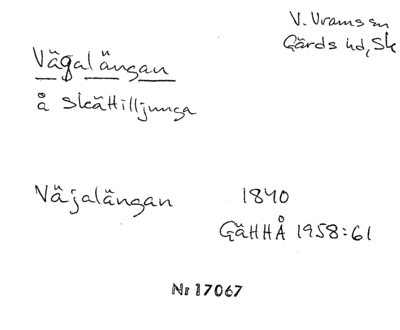 V. Vram sn
Gärds hd, Sk
Vägalängan
å Skättilljunga
Väjalängan 1840
GäHHÅ 1958:61
Nr 17067